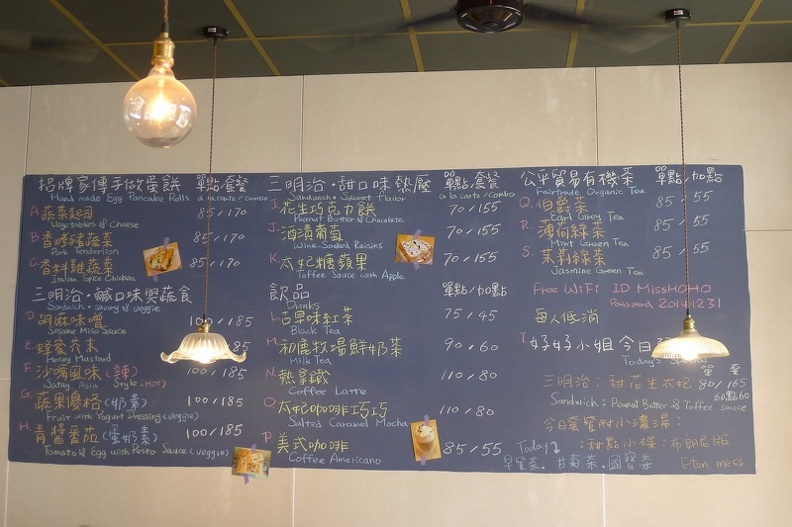 招牌家傳手做蛋餅 單點/套餐
Hand made Egg Pancake Rolls a la carte/combo
A. 蔬菜起司 85/170
Vegetables & Cheese
B. 香烤豬蔬菜 85/170
Pork Tenderlion
C. 香料雞蔬菜 85/170
Italian Spice Chicken
三明治・鹹口味與蔬食
Sandwich・savory & veggie
D. 胡麻味噌 100/185
Sesame Miso Sauce
E. 蜂蜜芥末
Honey Mustard
F. 沙嗲風味(辣) 100/185
Satay Asia Style (HOT)
G. 蔬果優格(奶素) 100/185
Fruit with Yogurt Dressing (Veggie)
H. 青醬番茄(蛋奶素) 100/185
Tomato & Egg with Pesto Sauce (Veggie)
三明治・甜口味熱壓 單點/套餐
Sandwich・Sweet flavor a la carte/combo
I. 花生巧克力餅 70/155
Peanut Butter & Chocolate
J. 酒漬葡萄 70/155
Wine-Soaked Raisins
K. 太妃糖蘋果 70/155
Toffee Sauce with Apple
飲品 單點/加點
Drinks
L. 古早味紅茶 75/45
Black Tea
M. 初鹿牧場鮮奶茶 90/60
Milk Tea
N. 熱拿鐵 110/80
Coffee Latte
O. 太妃咖啡巧巧 110/80
Salted Caramel Mocha
P. 美式咖啡 85/55
Coffee Americano
公平貿易有機茶 單點/加點
Fairtrade Organic Tea
Q. 伯爵茶 85/55
Earl Grey Tea
R. 薄荷綠茶 85/55
Mint Green Tea
S. 茉莉綠茶 85/55
Jasmine Green Tea
Free WiFi ID MissHOHO
Password 20141231
每人低消
T. 好好小姐今日
Today's
單 套
三明治：甜花生太妃 80/165
Sandwich：Peanut Butter & Toffee sauce
今日套餐附小濃湯：
：甜點小碟：布朗尼版
Today
早餐茶．甘菊茶．國寶茶 Eton mess